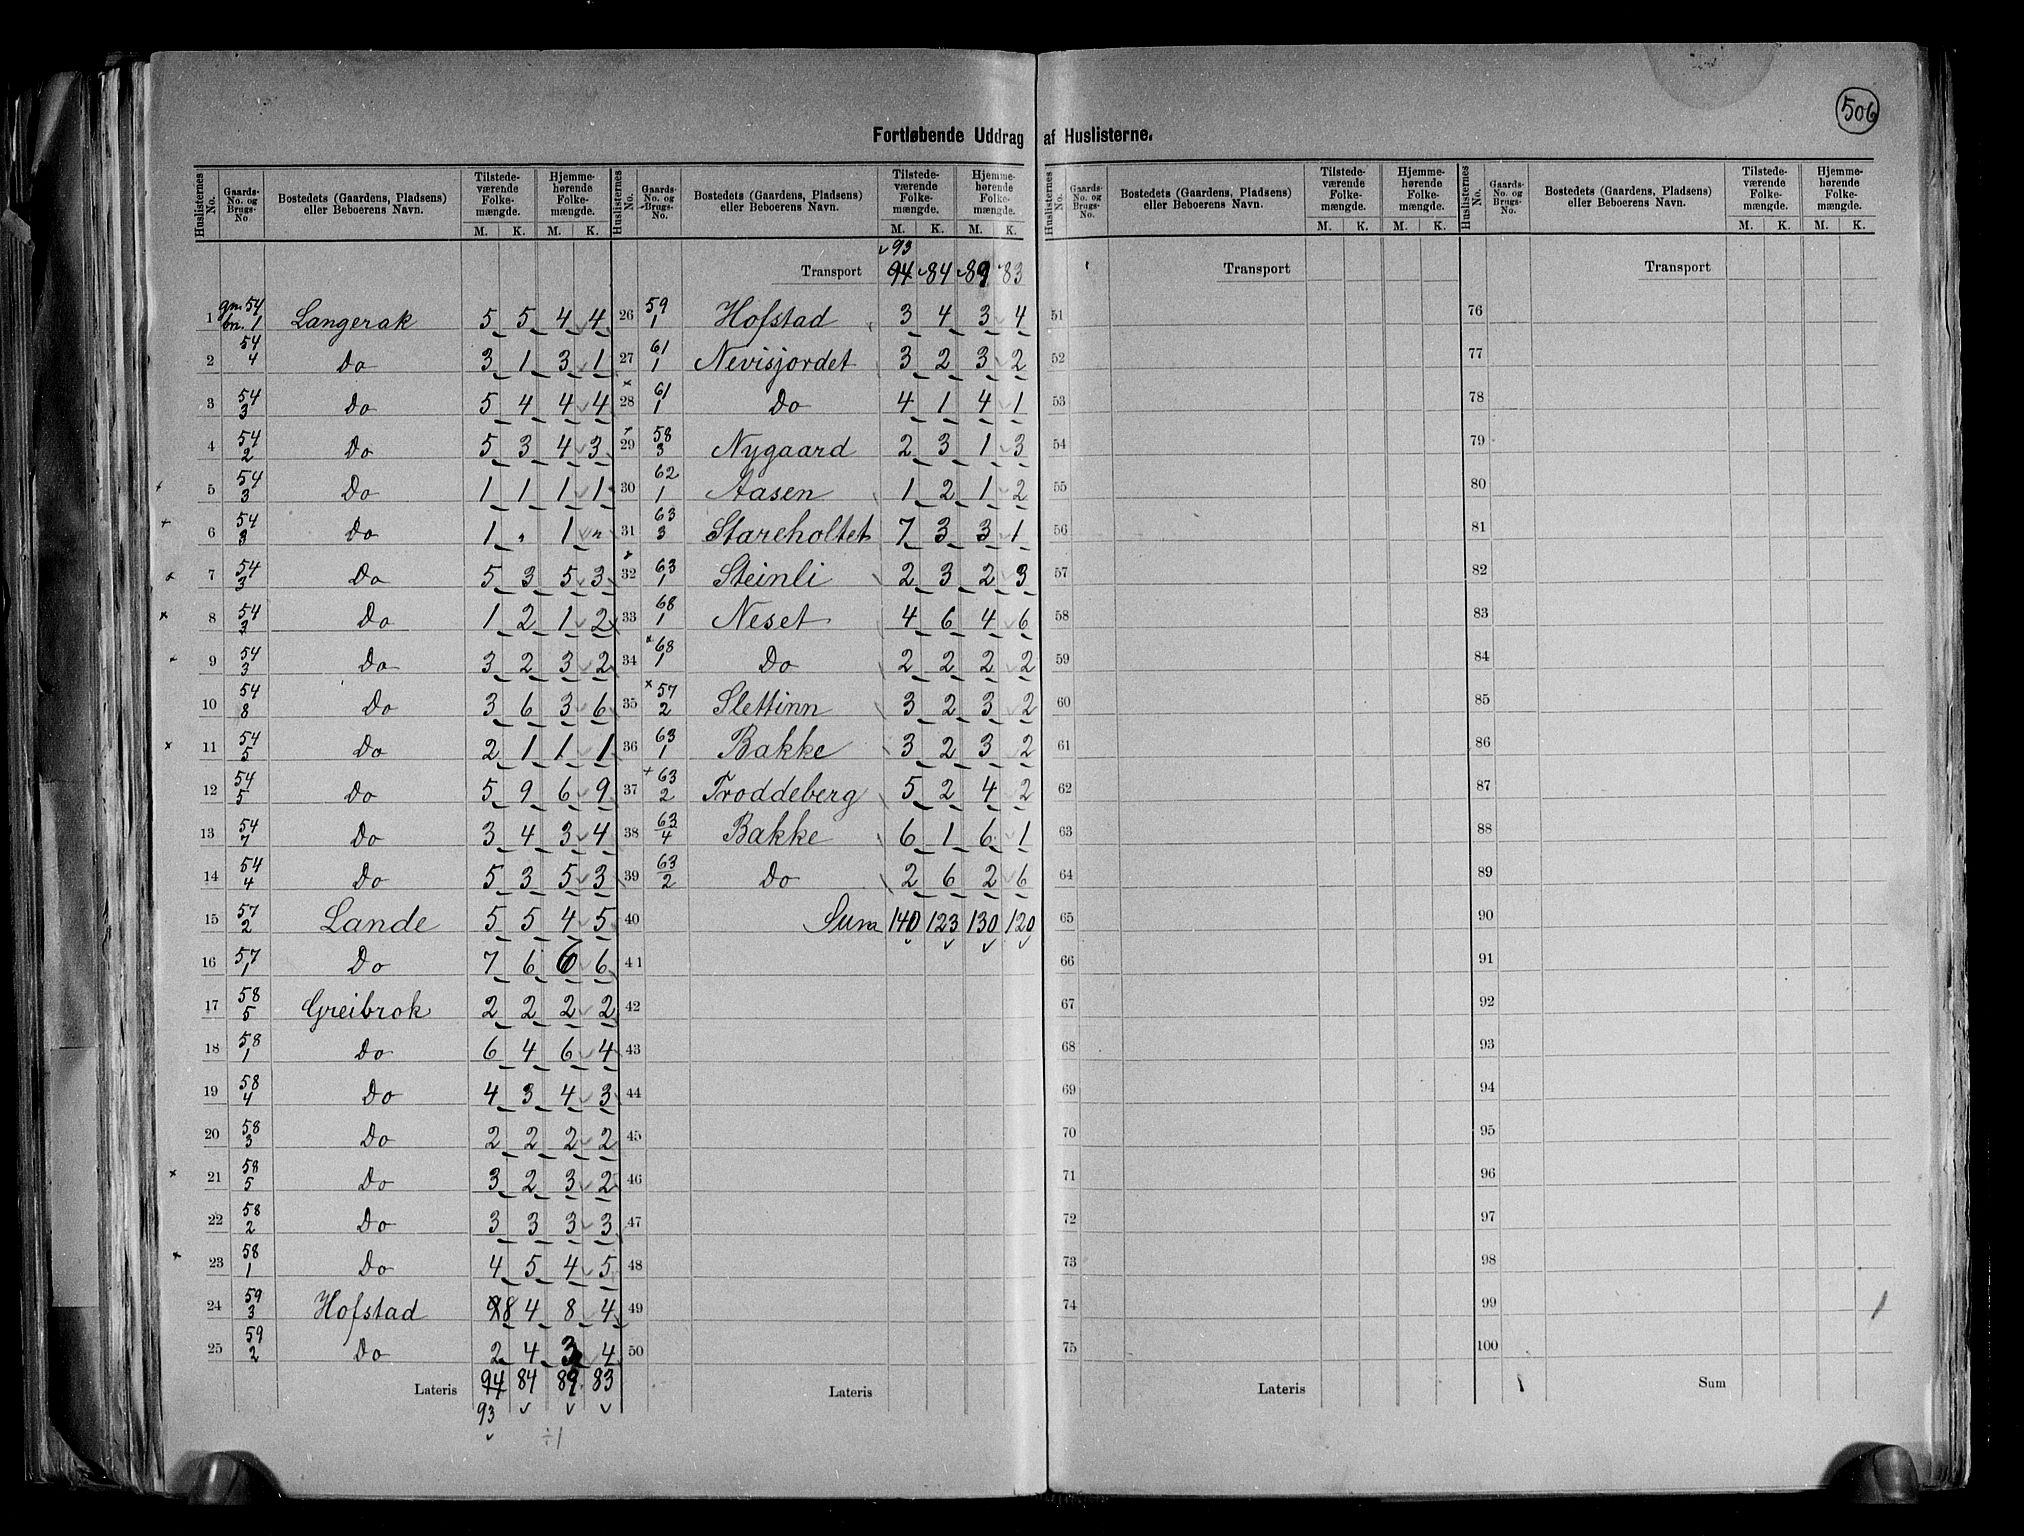 506
Fortløbende Uddrag af Huslisterne.
Huslisternes No. | Gaards-No. og Brugs-No. | Bostedets (Gaardens, Pladsens) eller Beboerens Navn. | Tilstedeværende Folkemængde. M. K. | Hjemmehørende Folkemængde. M. K.
1 gn. 54 bn. 1 Langerak 5 5 4 4
2 54 4 Do 3 1 3 1
3 54 3 Do 5 4 4 4
4 54 2 Do 5 3 4 3
5 54 3 Do 1 1 1 1
6 54 3 Do 1 " 1 "
7 54 3 Do 5 3 5 3
8 54 3 Do 1 2 1 2
9 54 3 Do 3 2 3 2
10 54 8 Do 3 6 3 6
11 54 5 Do 2 1 1 1
12 54 5 Do 5 9 6 9
13 54 7 Do 3 4 3 4
14 54 4 Do 5 3 5 3
15 57 2 Lande 5 5 4 5
16 57 1 Do 7 6 6 6
17 58 5 Greibrok 2 2 2 2
18 58 1 Do 6 4 6 4
19 58 4 Do 4 3 4 3
20 58 3 Do 2 2 2 2
21 58 5 Do 3 2 3 2
22 58 2 Do 3 3 3 3
23 58 1 Do 4 5 4 5
24 59 3 Hofstad 8 4 8 4
25 59 2 Do 2 4 3 4
Lateris 94 84 89 83
93
÷1
Huslisternes No. | Gaards-No. og Brugs-No. | Bostedets (Gaardens, Pladsens) eller Beboerens Navn. | Tilstedeværende Folkemængde. M. K. | Hjemmehørende Folkemængde. M. K.
93
Transport 94 84 89 83
26 59 1 Hofstad 3 4 3 4
27 61 1 Nevisjordet 3 2 3 2
28 61 1 Do 4 1 4 1
29 58 3 Nygaard 2 3 1 3
30 62 1 Aasen 1 2 1 2
31 63 3 Stareholtet 7 3 3 1
32 63 1 Steinli 2 3 2 3
33 68 1 Neset 4 6 4 6
34 68 1 Do 2 2 2 2
35 57 2 Slettinn 3 2 3 2
36 63 1 Bakke 3 2 3 2
37 63 2 Troddeberg 5 2 4 2
38 63 4 Bakke 6 1 6 1
39 63 2 Do 2 6 2 6
40 Sum 140 123 130 120
41
42
43
44
45
46
47
48
49
50
Lateris
Huslisternes No. | Gaards-No. og Brugs-No. | Bostedets (Gaardens, Pladsens) eller Beboerens Navn. | Tilstedeværende Folkemængde. M. K. | Hjemmehørende Folkemængde. M. K.
Transport
51
52
53
54
55
56
57
58
59
60
61
62
63
64
65
66
67
68
69
70
71
72
73
74
75
Lateris
Huslisternes No. | Gaards-No. og Brugs-No. | Bostedets (Gaardens, Pladsens) eller Beboerens Navn. | Tilstedeværende Folkemængde. M. K. | Hjemmehørende Folkemængde. M. K.
Transport
76
77
78
79
80
81
82
83
84
85
86
87
88
89
90
91
92
93
94
95
96
97
98
99
100
Sum